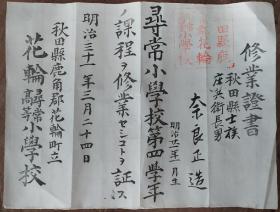 修業證書
秋田縣士族
庄兵衛長男
奈良正造
明治廿一年一月生
尋常小學校第四學年
ノ課程ヲ修業セシコトヲ証ス
明治三十一年三月二十四日
秋田縣鹿角郡花輪町立
花輪尋常小學校